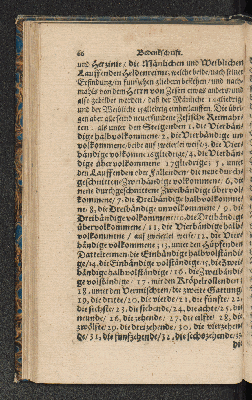 66 Bedenkschrift.
und Herzinie / die Mänlichen und Weiblichen
Lauffenden Heldenreime / welche beide / nach seiner
Erfindung / in fünfzehen gliedern bestehen / und nach-
mahls von dem Herrn von Zesen etwas anders / und
also gesetzet worden / daß der Mänliche 15gliedrig /
und der Weibliche 15gliedrig einherlauffen. Die übri-
gen aber alle seind neuerfundene Zesische Reimahr-
ten. als unter den Steigenden 1. die Vierbän-
dige halbvolkommene / 2. die Vierbändige un-
volkommene / beide auf zweierlei weise / 3. die Vier-
bändige volkomne 16gliedrige / 4. die Vierbän-
dige übervolkommene 17gliedrige: 5. unter
den Lauffenden oder Fallenden / die neue durch-
geschnittene Zweibändige volkommene / 6. die
neue durchgeschnittene Zweibändige übervol-
kommene / 7. die Dreibändige halbvolkomme-
ne / 8. die Dreibändige unvolkommene / 9. die
Dreibändige volkommene / 10. die Dreibändige
übervolkommene / 11. die Vierbändige halbvol-
kommene / auf zweierlei weise / 12. die Vierbän-
dige volkommene; 13. unter den Hüpfenden
Dattelreimen / die Einbändige halbvolständi-
ge / 14. die Einbändige volständige / 15. die Zweibän-
dige halbvolständige / 16. die Zweibändi-
ge volständige / 17. mit den Kröpelrollenden /
18. unter den Vermischten / die zweite Gattung /
19. die dritte / 20. die vierde / 21. die fünfte / 22.
die sechste / 23. die siebende / 24. die achte / 25. die
neunde / 26. die zehende / 27. die eilfte / 28. die
zwölfte / 29. die dreizehende / 30. die vierzehen-
de / 31. die funfzehende / 32. die sechszehende / 33.
die